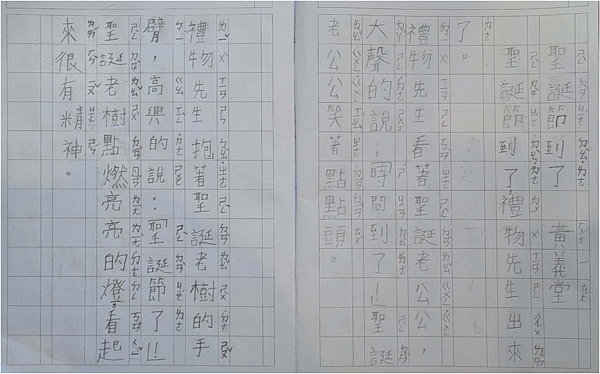 聖誕節到了 黃義堂
聖誕節到了,禮物先生出來
了。
禮物先生看著聖誕老公公,
大聲的說:「時間到了!」聖誕
老公公笑著點點頭。
禮物先生抱著聖誕老樹的手
臂,高興的說:「聖誕節了!」
聖誕老樹點燃亮亮的燈。看起
來很有精神。